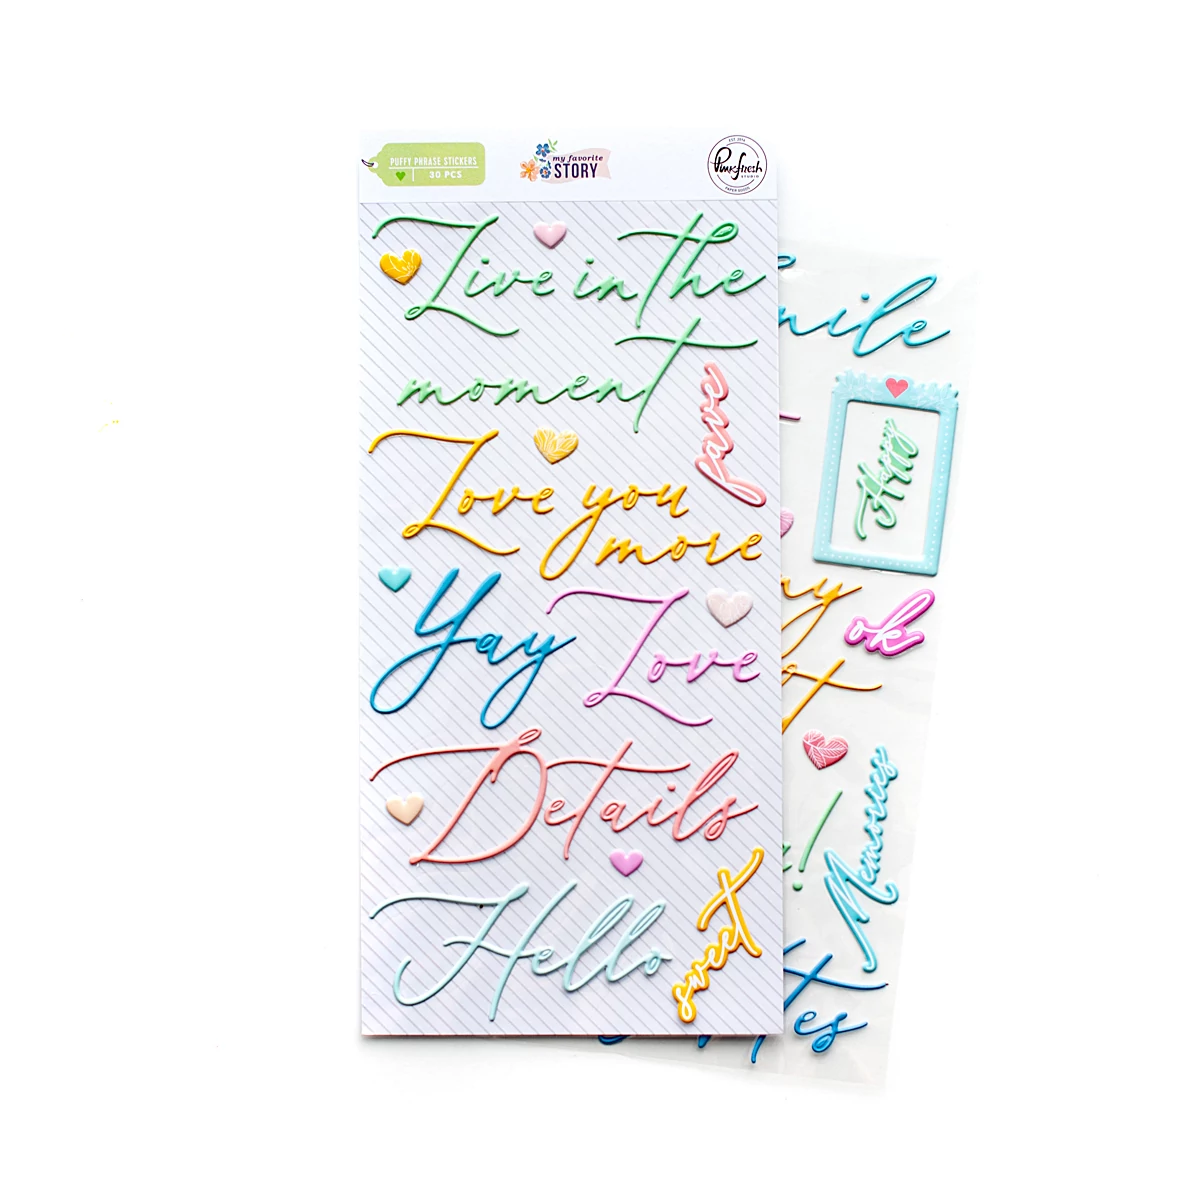 PUFFY PHRASE STICKERS
30 PCS
my favorite
STORY
EST. 2014
Pinkfresh
STUDIO
PAPER GOODS
Live in the
moment
fave
Love you
more
Yay
Love
Details
Hello
sweet
Happy
ok
Memories